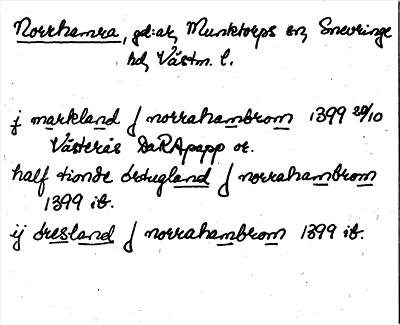 Norrhamra, gd:ar, Munktorps sn, Snevringe
hd, Västm. l.
j markland j norrahambrom 1399 29/10
Västerås DaRApapp or.
half tionde örtugland j norrahambrom
1399 ib.
ij öresland j norrahambrom 1399 ib.